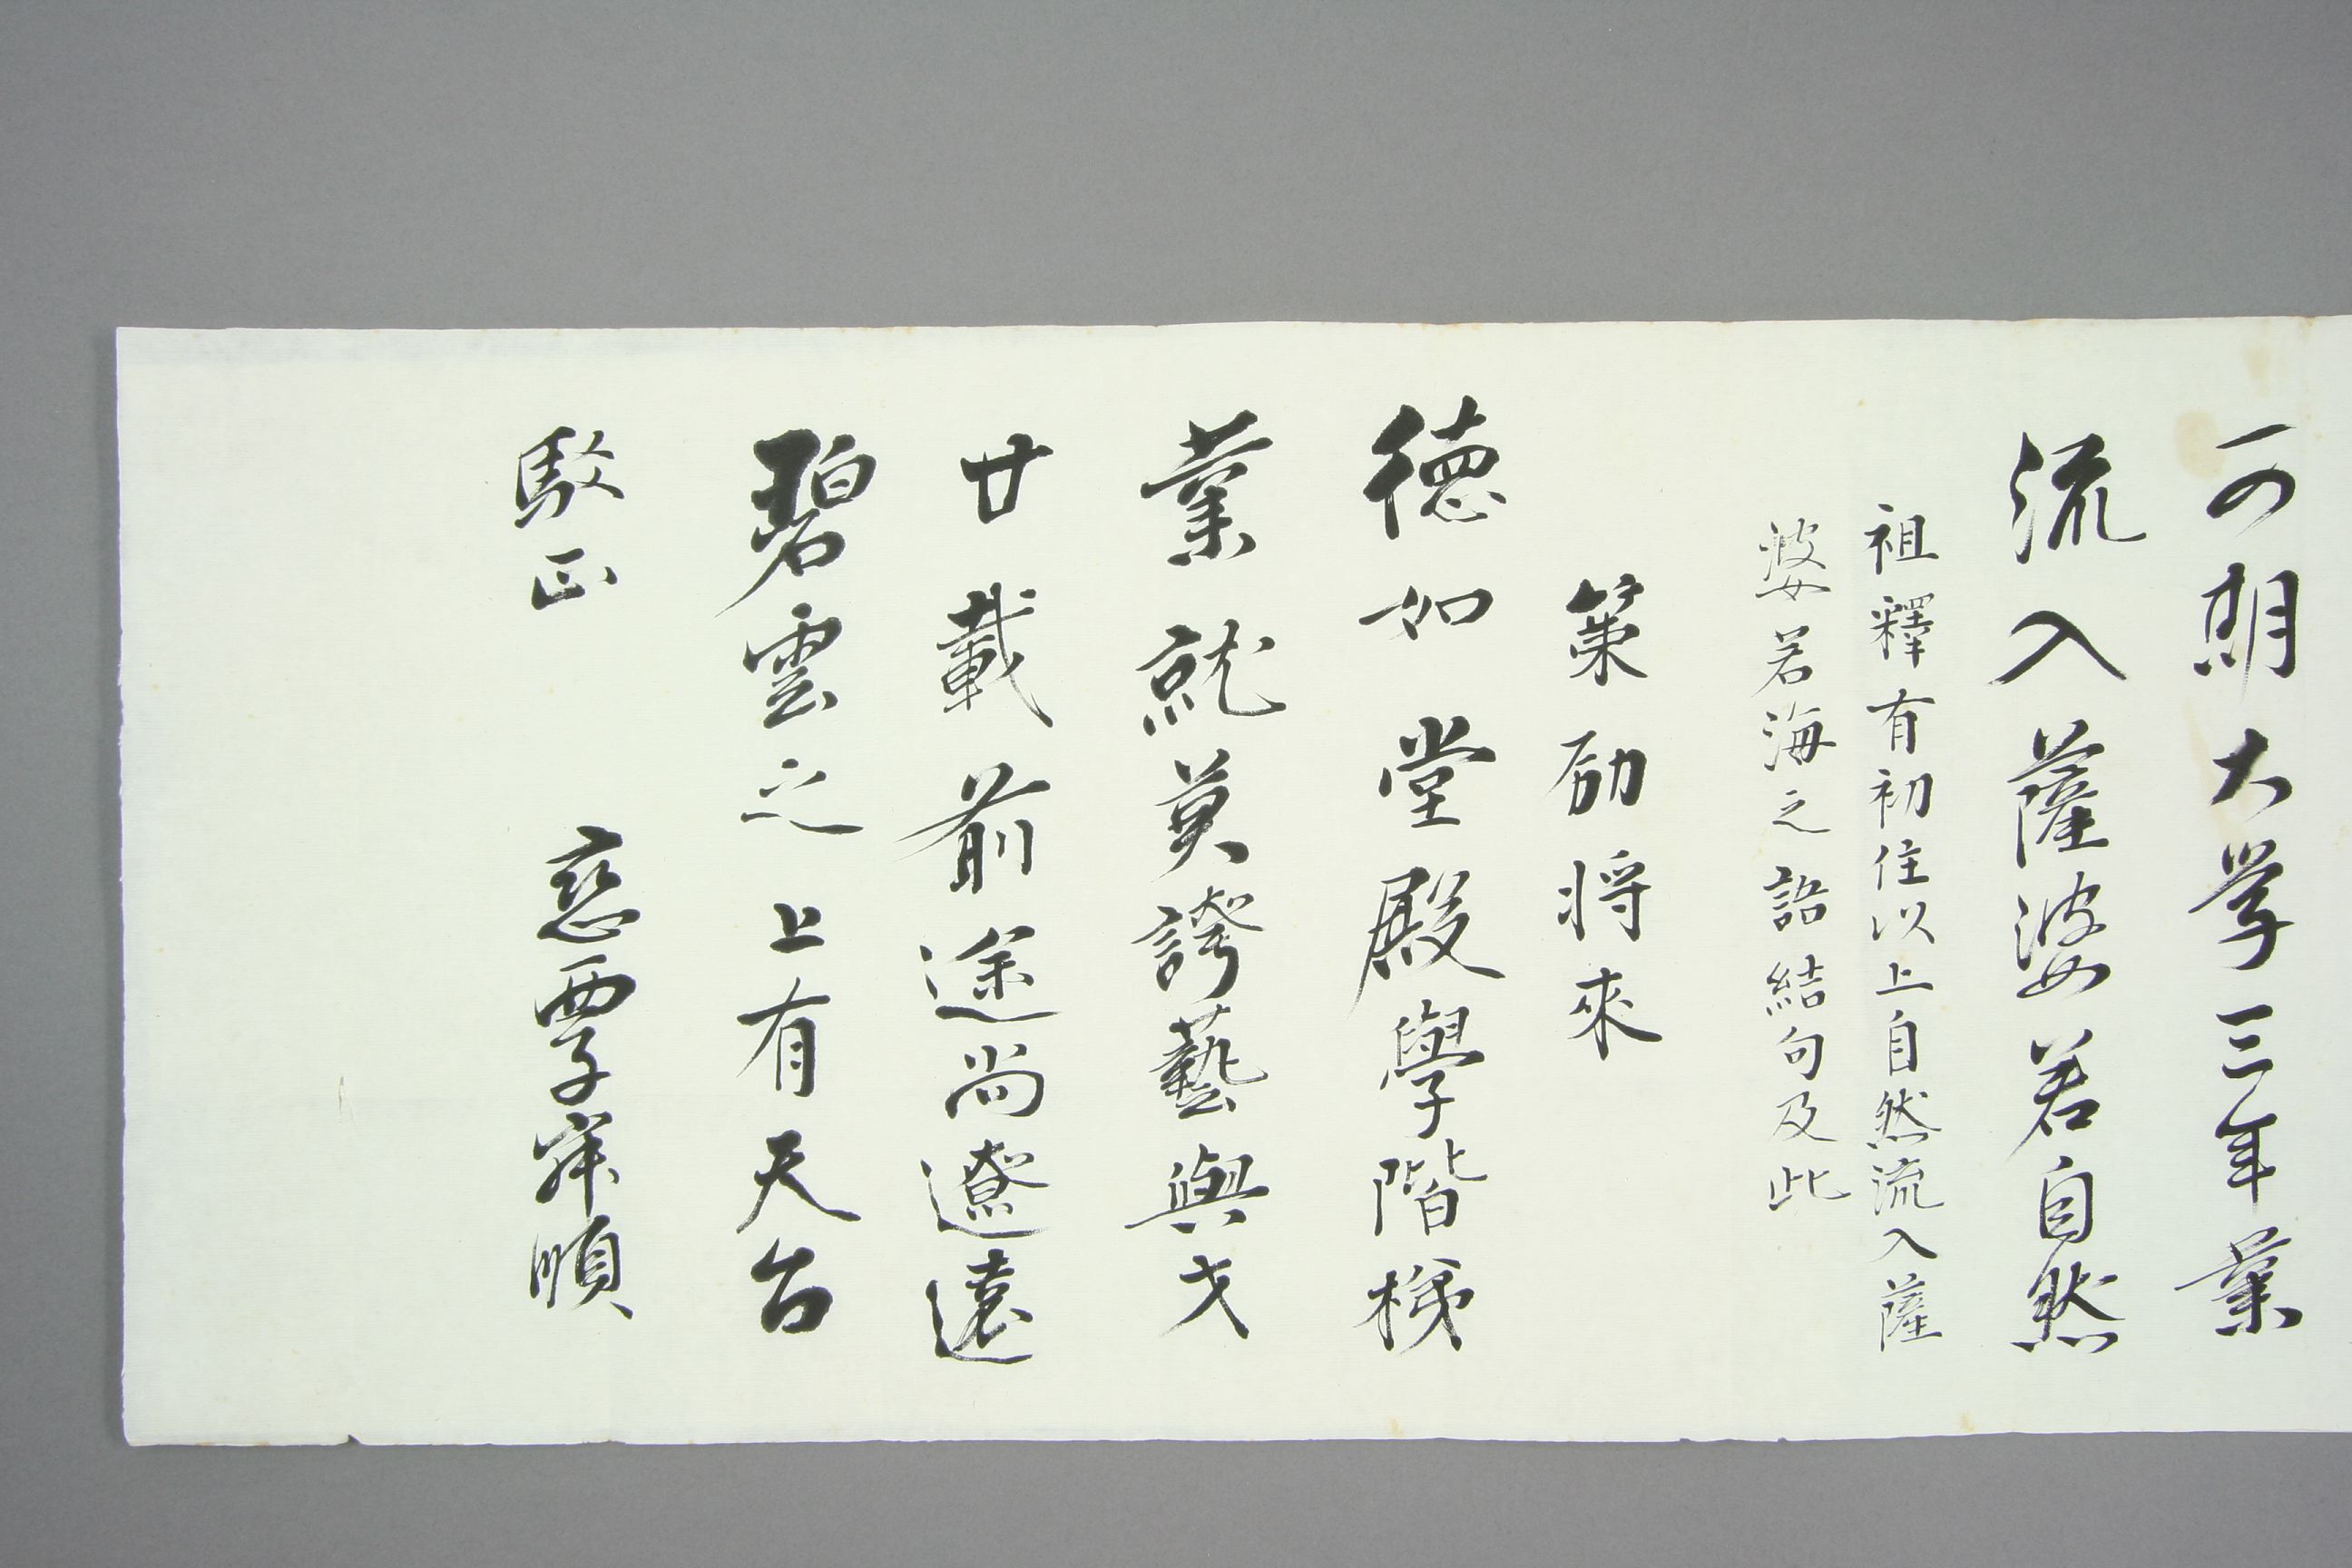 可期大学三年業
流入薩婆若自然
祖釋有初住以上自然流入薩
婆若海之語結句及此
策励将來
德如堂殿學階梯
業就莫誇藝與才
廿載前途尚遼遠
碧雲之上有天台
駁正
慈覃子 順